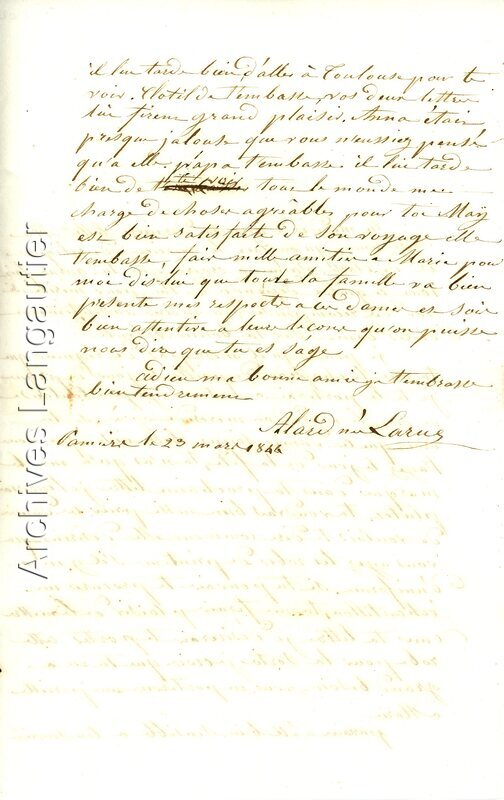 il lui tarde bien d'aller à Toulouse pour te
voir. Clotilde t'embasse, vos deux lettre
lui firent grand plaisir. Anna était
presque jalouse que vous n'eussiez pensé
qu'a elle, papa t'embasse il lui tarde
bien de te voir tout le monde me
charge de choses agréables pour toi May
est bien satisfaite de son voyage elle
t'embasse, fait mille amitier a Marie pour
moi dis-lui que toute la famille va bien
présente mes respects a ces dames et soit
bien attentive a leurs leçons qu'on puisse
nous dire que tu es sage
adieu ma bonne amie je t'embrasse
bien tendrement
Alard née Larue
Pamiers le 23 mars 1846
Archives Langautier